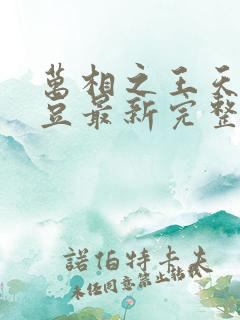 萬相之王天
豆最新完整
諾伯特卡夫
未经同意禁止转载